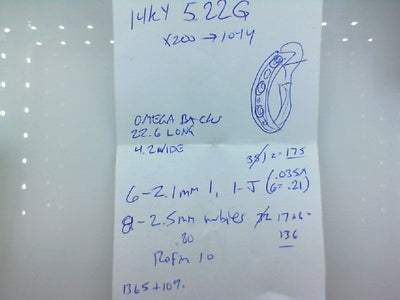 14KY 5.22G
x200 → 1044
OMEGA BACKS
22.6 LONG
4.2 WIDE
= 175
6-2.1mm 1, 1-J (.035x
6= .21)
8-2.5mm rubies 17x8=
.80 136
Refin 10
1365+10%